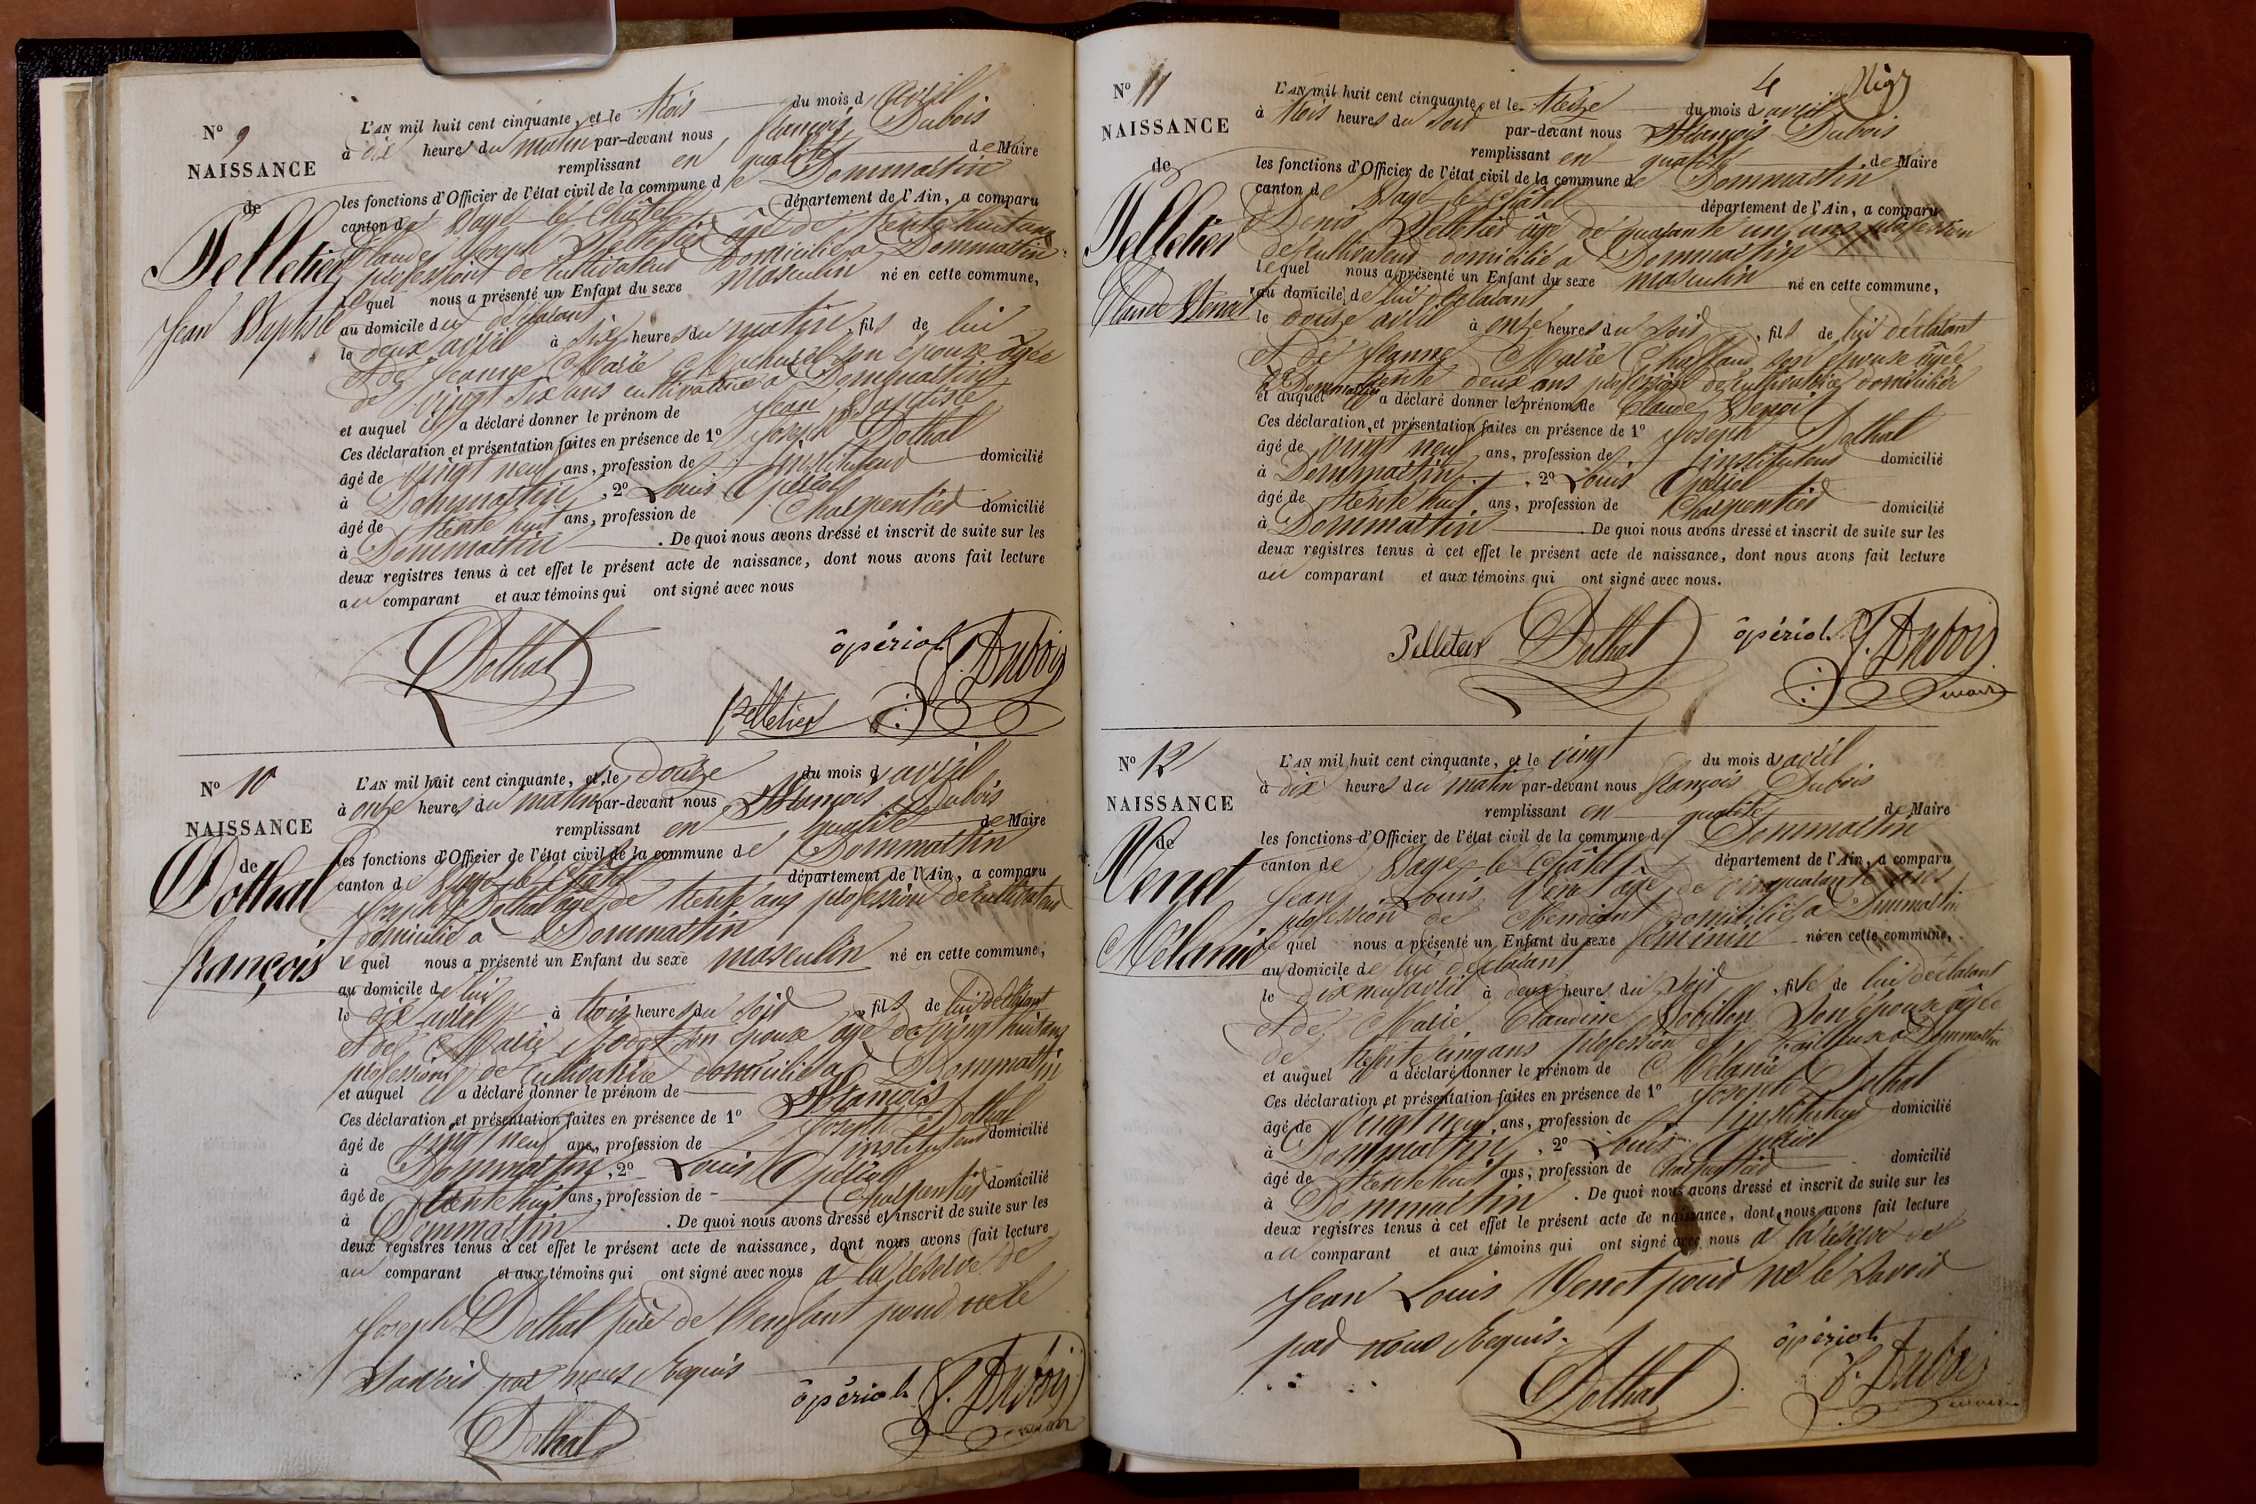 N° 9
NAISSANCE
de
Pelletier
Jean Baptiste
L'AN mil huit cent cinquante, et le trois du mois d'avril
à dix heures du matin par-devant nous françois Dubois
remplissant en qualité de Maire
les fonctions d'Officier de l'état civil de la commune de Dommartin
canton de Bagé le Châtel département de l'Ain, a comparu
Claude Joseph Pelletier âgé de trente huit ans
profession de cultivateur domicilié a Dommartin
lequel nous a présenté un Enfant du sexe masculin né en cette commune,
au domicile du déclarant
le deux avril à six heures du matin, fils de lui
et de Jeanne Marie son épouse âgée
de vingt six ans cultivatrice a Dommartin
et auquel il a déclaré donner le prénom de Jean Baptiste
Ces déclaration et présentation faites en présence de 1° Joseph Dothal
âgé de vingt neuf ans, profession de instituteur domicilié
à Dommartin, 2° Louis Opériol
âgé de trente huit ans, profession de Charpentier domicilié
à Dommartin. De quoi nous avons dressé et inscrit de suite sur les
deux registres tenus à cet effet le présent acte de naissance, dont nous avons fait lecture
au comparant et aux témoins qui ont signé avec nous
Dothal opériol f. Dubois
Pelletier
N° 10
NAISSANCE
de
Dothal
françois
L'AN mil huit cent cinquante, et le douze du mois d'avril
à onze heures du matin par-devant nous françois Dubois
remplissant en qualité de Maire
les fonctions d'Officier de l'état civil de la commune de Dommartin
canton de Bagé le Châtel département de l'Ain, a comparu
Joseph Dothal âgé de trente ans profession de cultivateur
domicilié a Dommartin
lequel nous a présenté un Enfant du sexe masculin né en cette commune,
au domicile de lui
le dix avril à trois heures du soir, fils de lui déclarant
et de Marie son épouse âgé de vingt huit ans
profession de cultivatrice domicilié a Dommartin
et auquel il a déclaré donner le prénom de françois
Ces déclaration et présentation faites en présence de 1° Joseph Dothal
âgé de vingt neuf ans, profession de instituteur domicilié
à Dommartin, 2° Louis Opériol
âgé de trente huit ans, profession de Charpentier domicilié
à Dommartin. De quoi nous avons dressé et inscrit de suite sur les
deux registres tenus à cet effet le présent acte de naissance, dont nous avons fait lecture
au comparant et aux témoins qui ont signé avec nous à la réserve de
Joseph Dothal père de l'enfant pour ne le
savoir par nous Requis
opériol f. Dubois
Dothal maire
4
N° 11
NAISSANCE
de
Pelletier
Claude Benoit
L'AN mil huit cent cinquante, et le treize du mois d'avril
à trois heures du soir par-devant nous françois Dubois
remplissant en qualité de Maire
les fonctions d'Officier de l'état civil de la commune de Dommartin
canton de Bagé le Châtel département de l'Ain, a comparu
Denis Pelletier âgé de quarante un ans profession
de cultivateur domicilié a Dommartin
lequel nous a présenté un Enfant du sexe masculin né en cette commune,
au domicile de lui déclarant
le douze avril à onze heures du soir, fils de lui déclarant
et de Jeanne Marie son épouse âgée
de trente deux ans profession de cultivatrice domiciliée
a Dommartin
et auquel il a déclaré donner les prénoms de Claude Benoit
Ces déclaration et présentation faites en présence de 1° Joseph Dothal
âgé de vingt neuf ans, profession de instituteur domicilié
à Dommartin, 2° Louis Opériol
âgé de trente huit ans, profession de Charpentier domicilié
à Dommartin. De quoi nous avons dressé et inscrit de suite sur les
deux registres tenus à cet effet le présent acte de naissance, dont nous avons fait lecture
au comparant et aux témoins qui ont signé avec nous.
Pelletier Dothal opériol f. Dubois
maire
N° 12
NAISSANCE
de
Venet
Mélanie
L'AN mil huit cent cinquante, et le vingt du mois d'avril
à dix heures du matin par-devant nous françois Dubois
remplissant en qualité de Maire
les fonctions d'Officier de l'état civil de la commune de Dommartin
canton de Bagé le Châtel département de l'Ain, a comparu
Jean Louis Venet âgé de cinquante ans
profession de domicilié a Dommartin
lequel nous a présenté un Enfant du sexe féminin né en cette commune,
au domicile de lui déclarant
le dix neuf avril à deux heures du soir, fille de lui déclarant
et de Marie Claudine Robillon son épouse âgée
de trente cinq ans profession de tailleuse a Dommartin
et auquel il a déclaré donner le prénom de Mélanie
Ces déclaration et présentation faites en présence de 1° Joseph Dothal
âgé de vingt neuf ans, profession de instituteur domicilié
à Dommartin, 2° Louis Opériol
âgé de trente huit ans, profession de Charpentier domicilié
à Dommartin. De quoi nous avons dressé et inscrit de suite sur les
deux registres tenus à cet effet le présent acte de naissance, dont nous avons fait lecture
au comparant et aux témoins qui ont signé avec nous à la réserve de
Jean Louis Venet pour ne le savoir
par nous Requis.
opériol
Dothal f. Dubois
maire